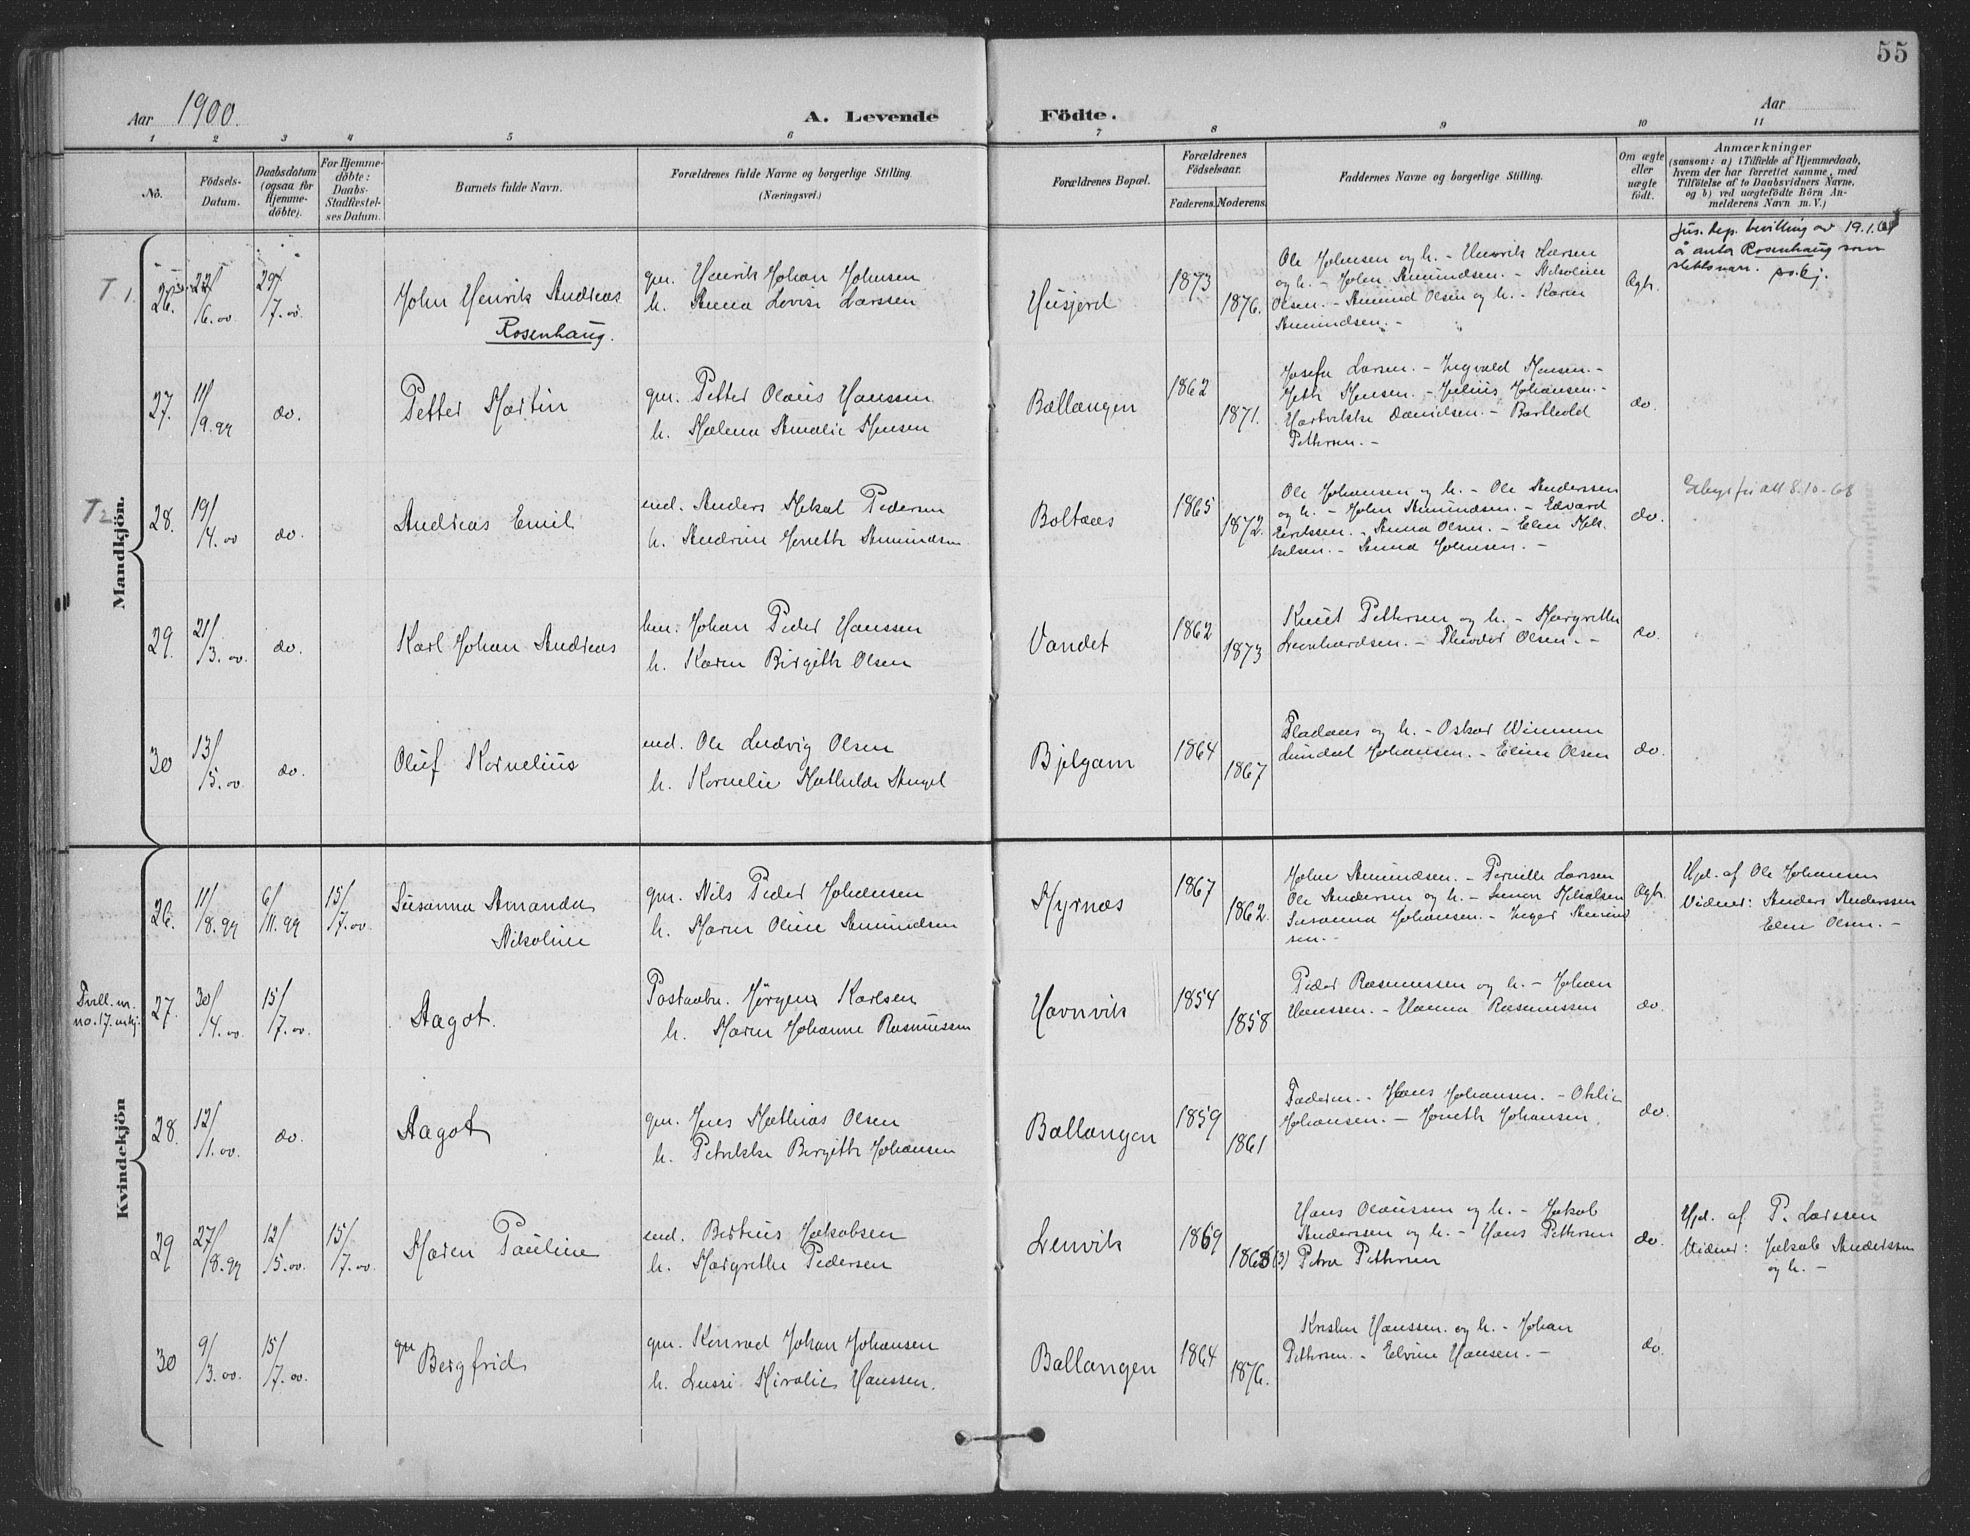 55
Aar 1900.
A. Levende Födte.
Aar
1 2 3 4 5 6 7 8 9 10 11
No.
Födsels-Datum.
Daabsdatum (ogsaa for Hjemme-döbte).
For Hjemme-döbte: Daabs-Stadfæstel-ses Datum.
Barnets fulde Navn.
Forældrenes fulde Navne og borgerlige Stilling.
(Næringsvei.)
Forældrenes Bopæl.
Forældrenes Födselsaar.
Faderens. Moderens.
Faddernes Navne og borgerlige Stilling.
Om ægte eller uægte födt.
Anmærkninger
(saasom: a) i Tilfælde af Hjemmedaab,
hvem der har forrettet samme, med
Tilföielse af to Daabsvidners Navne,
og b) ved uægtefödte Börn An-
melderens Navn m. V.)
Mandkjön.
T 1.
26. 22/6.00 29/7.00
John Henrik Andreas
Rosenhaug.
gm. Henrik Johan Johnsen
h. Anna Lovise Larssen
Husjord
1873
1876.
Ole Johnsen og h. - Henrik Larsen
og h. - John Amundsen. - Nikoline
Olsen. - Amund Olsen og h. - Karen
Amundsen. -
Ægte.
Jus. dep. bevilling av 19.1.
å anta Rosenhaug som
slektsnavn.
27. 11/9.99 do.
Petter Martin
gm. Petter Olaus Hanssen
h. Malena Amalie Monsen
Ballangen
1862
1871.
Josefa Larsen. - Ingvald Monsen. -
Meth Monsen. - Julius Johansen. -
Hartvikke Danielsen. - Barthold
Pettersen. -
do.
T 2
28. 19/4.00 do.
Andreas Emil
ind. Anders Mikal Pedersen
h. Andrine Jonette Amundsen
Boltaas
1865
1872.
Ole Johansen og h. - Ole Anderssen
og h. - John Amundsen. - Edvard
Erikssen. - Anna Olsen. - Elen Mik
kelsen. - Anna Johnsen. -
do.
8.10-68
29. 21/3.00 do.
Karl Johan Andreas
Johan Peder Hanssen
h. Karen Birgith Olsen
Vandet
1862
1873
Knut Pettersen og h. - Margrethe
Leonhardsen. - Theodor Olsen. -
do.
30 13/5.00 do.
Oluf Kornelius
ind. Ole Ludvig Olsen
h. Kornelie Mathilde Angel
Bjelgam
1864
1867
og h. - Oskar
Lundal Johansen. - Eline Olsen
do.
Kvindekjön
26. 11/8.99 6/11.99 15/7.00
Susanna Amanda
Nikoline
gm. Nils Peder Johansen
h. Maren Oline Amundsen
Myrnæs
1867
1862.
John Amundsen. - Pernille Larssen
Ole Andersen og h. - Simon Mikalsen
Susanna Johansen. - Inger Amund
sen. -
Ægte.
Hjd. af Ole Johansen
Vidner: Anders Anderssen
Elen Olsen. -
Tvill. m.
no. 17. mkj.
27. 30/4.00 15/7.00
Aagot.
Postaabn. Jørgen Karlsen
h. Maren Johanne Rasmussen
Havnvik
1854
1858
Peder Rasmussen og h. - Johan
Hanssen. - Hanna Rasmussen
do.
28. 12/1.00 do.
Aagot
gm. Jens Mathias Olsen
h. Petrikke Birgitte Johansen
Ballangen
1859
1861
Faderen. - Hans Johansen. - Otilie
Johansen. - Jonette Johansen.
do.
29 27/8.99 12/5.00 15/7.00
Maren Pauline
ind. Bertius Jakobsen
h. Margrethe Pedersen
Lenvik
1869
186 (3)
Hans Olaussen og h. - Jakob
Anderssen og h. - Hans Pettersen
Petra Pettersen
do.
Hjd. af P. Larssen
Vidner: Jakob Anderssen
og h. -
30 9/3.00 15/7.00
Bergfrid
gm. Konrad Johan Johansen
h. Lussi Miralie Hanssen.
Ballangen
1864
1876.
Hanssen og h. - Johan
Pettersen. - Elvine Hansen. -
do.